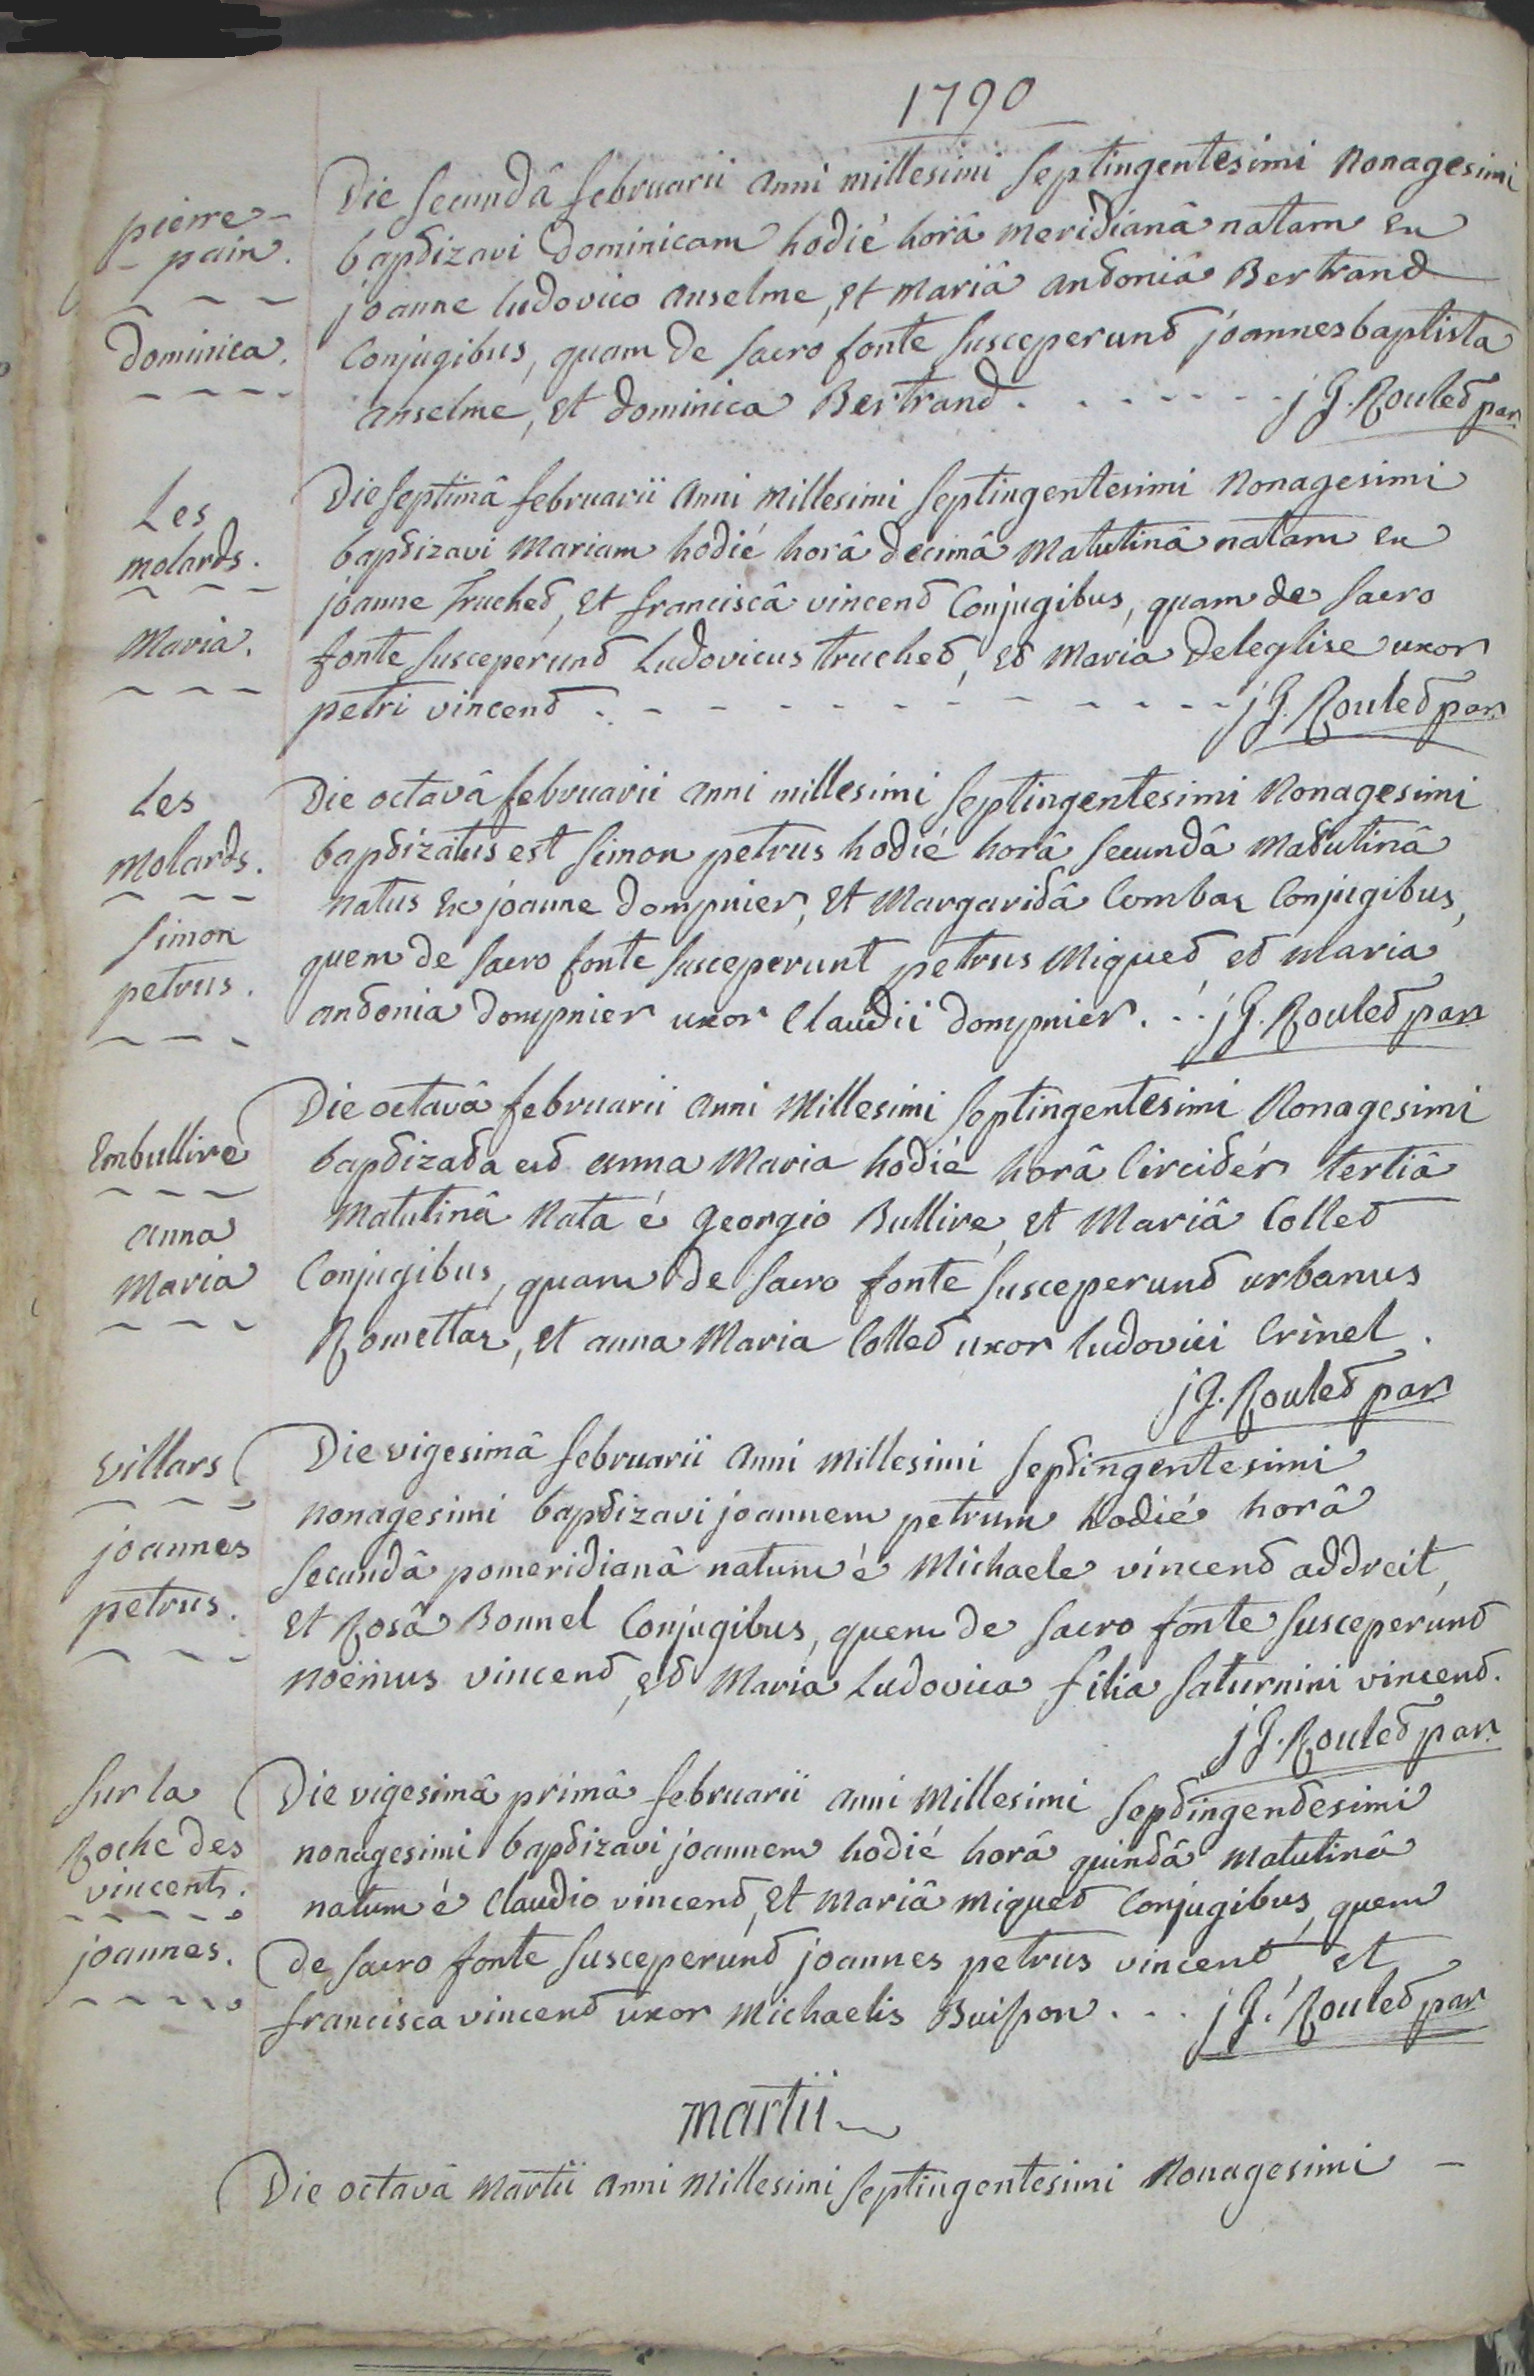 1790
pierre-
- pain.
dominica.
Die secundâ februarii anni millesimi septingentesimi nonagesimi
baptizavi dominicam hodié horâ meridianâ natam ex
joanne ludovico anselme, et mariâ antoniâ Bertrand
Conjugibus, quam de sacro fonte susceperunt joannes baptista
anselme, et dominica Bertrand. - - - - - - j G. Roulet par.
Les
molards.
Maria.
Die septimâ februarii anni millesimi septingentesimi nonagesimi
baptizavi Mariam hodié horâ decimâ matutinâ natam ex
joanne Truchet, et franciscâ vincent Conjugibus, quam de sacro
fonte susceperunt Ludovicus truchet, et Maria deleglise uxor
petri vincent. - - - - - - - - - - j G. Roulet par
Les
Molards.
Simon
petrus.
Die octavâ februarii anni millesimi septingentesimi nonagesimi
baptizatus est simon petrus hodié horâ secundâ matutinâ
natus ex joanne dompnier, et Margaritâ Combaz Conjugibus,
quem de sacro fonte susceperunt petrus Miquet et maria
antonia dompnier uxor Claudii dompnier. . . j G. Roulet par
Embullire
anna
Maria
Die octavâ februarii anni Millesimi septingentesimi nonagesimi
baptizata est anna Maria hodié horâ Circitér tertiâ
matutinâ nata é Georgio Bullire, et Mariâ Collet
Conjugibus, quam de sacro fonte susceperunt urbanus
Romettaz, et anna Maria Collet uxor ludovici Crinel.
j G. Roulet par
Villars
joannes
petrus.
Die vigesimâ februarii anni Millesimi septingentesimi
nonagesimi baptizavi joannem petrum hodié horâ
secundâ pomeridianâ natum é Michaele vincent addreit,
et Rosâ Bonnel Conjugibus, quem de sacro fonte susceperunt
noëmus vincent, et Maria Ludovica filia saturnini vincent.
j G. Roulet par
Sur la
Roche des
vincents.
joannes.
Die vigesimâ primâ februarii anni Millesimi septingentesimi
nonagesimi baptizavi joannem hodié horâ quintâ matutinâ
natum é Claudio vincent, et Mariâ miquet Conjugibus, quem
de sacro fonte susceperunt joannes petrus vincent et
francisca vincent uxor Michaelis Buisson. . . j G. Roulet par
martii
Die octavâ martii anni Millesimi septingentesimi nonagesimi -